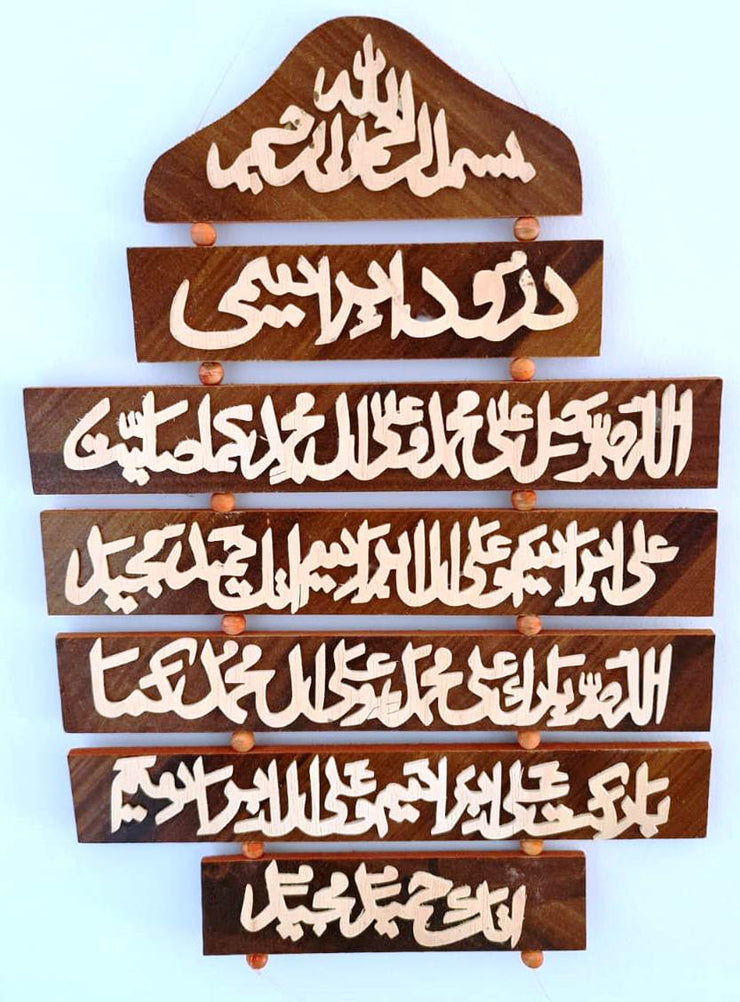 بسم الله الرحمن الرحيم
درود ابراہیمی
اللهم صل على محمد وعلى ال محمد كما صليت
على ابراهيم وعلى ال ابراهيم انك حميد مجيد
اللهم بارك على محمد وعلى ال محمد كما
باركت على ابراهيم وعلى ال ابراهيم
انك حميد مجيد